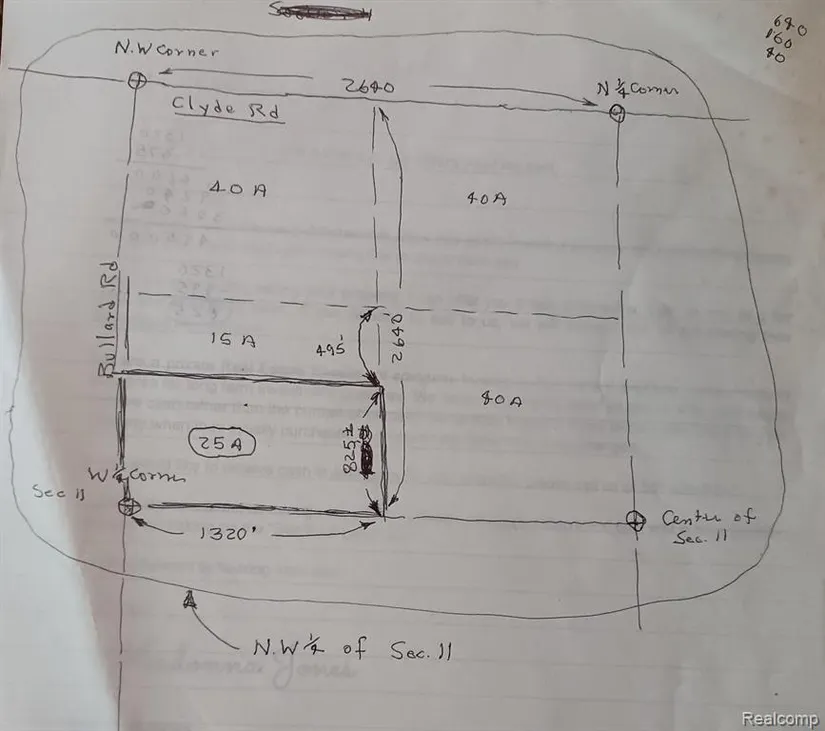 640
160
40
N.W Corner
2640
N 1/4 Corner
Clyde Rd
40 A
40A
Bullard Rd
15 A
495'
2640
80A
825'±
25A
W 1/4 Corner
Sec 11
1320'
Center of
Sec. 11
N.W 1/4 of Sec. 11
Realcomp